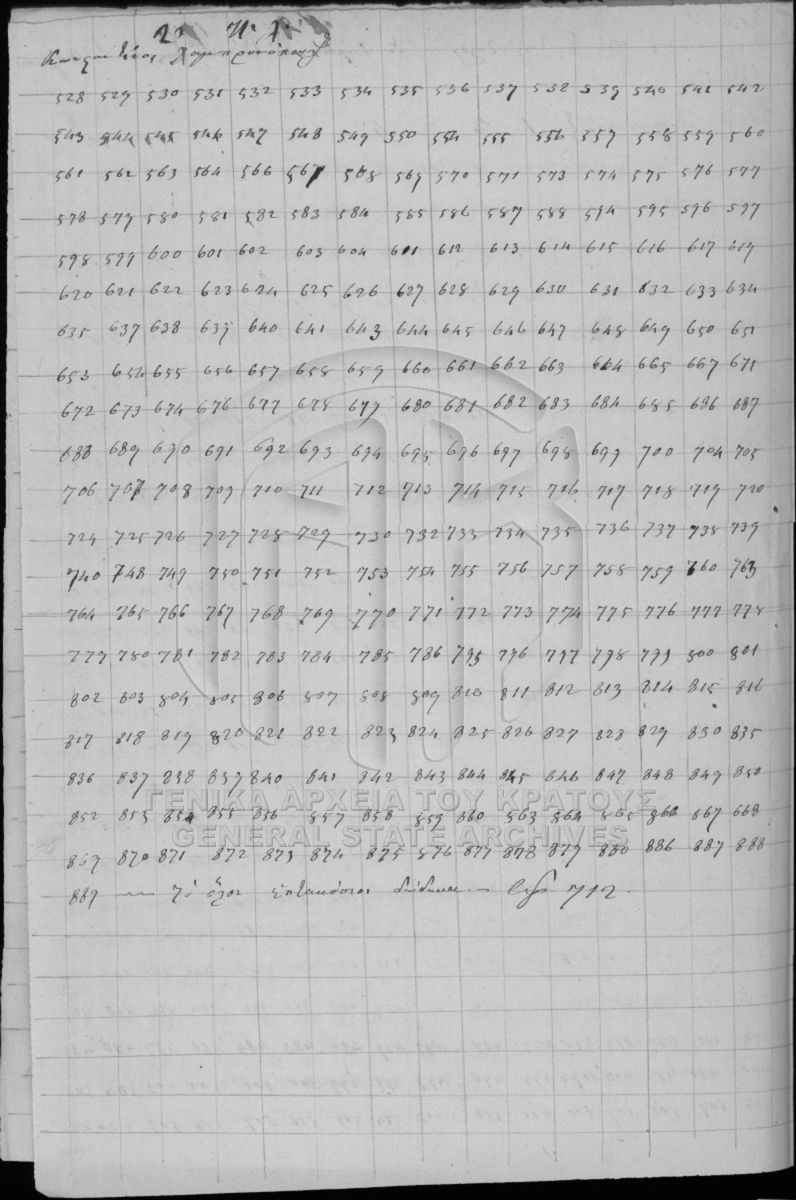 2α Η. Χ.
528 529 530 531 532 533 534 535 536 537 538 539 540 541 542
543 544 545 546 547 548 549 550 554 555 556 557 558 559 560
561 562 563 564 566 567 568 569 570 571 573 574 575 576 577
578 579 580 581 582 583 584 585 586 587 588 594 595 596 597
598 599 600 601 602 603 604 611 612 613 614 615 616 617 619
620 621 622 623 624 625 626 627 628 629 630 631 632 633 634
635 637 638 639 640 641 643 644 645 646 647 648 649 650 651
653 654 655 656 657 658 659 660 661 662 663 664 665 667 671
672 673 674 676 677 678 679 680 681 682 683 684 685 686 687
688 689 690 691 692 693 694 695 696 697 698 699 700 704 705
706 707 708 709 710 711 712 713 714 715 716 717 718 719 720
724 725 726 727 728 729 730 732 733 734 735 736 737 738 739
740 748 749 750 751 752 753 754 755 756 757 758 759 760 763
764 765 766 767 768 769 770 771 772 773 774 775 776 777 778
779 780 781 782 783 784 785 786 795 796 797 798 799 800 801
802 803 804 805 806 807 808 809 810 811 812 813 814 815 816
817 818 819 820 821 822 823 824 825 826 827 828 829 830 835
836 837 838 839 840 841 842 843 844 845 846 847 848 849 850
852 853 854 855 856 857 858 859 860 863 864 865 866 867 868
869 870 871 872 873 874 875 876 877 878 879 880 886 887 888
889 — τό όλον επτακόσιοι δώδεκα — 712.
ΓΕΝΙΚΑ ΑΡΧΕΙΑ ΤΟΥ ΚΡΑΤΟΥΣ
GENERAL STATE ARCHIVES